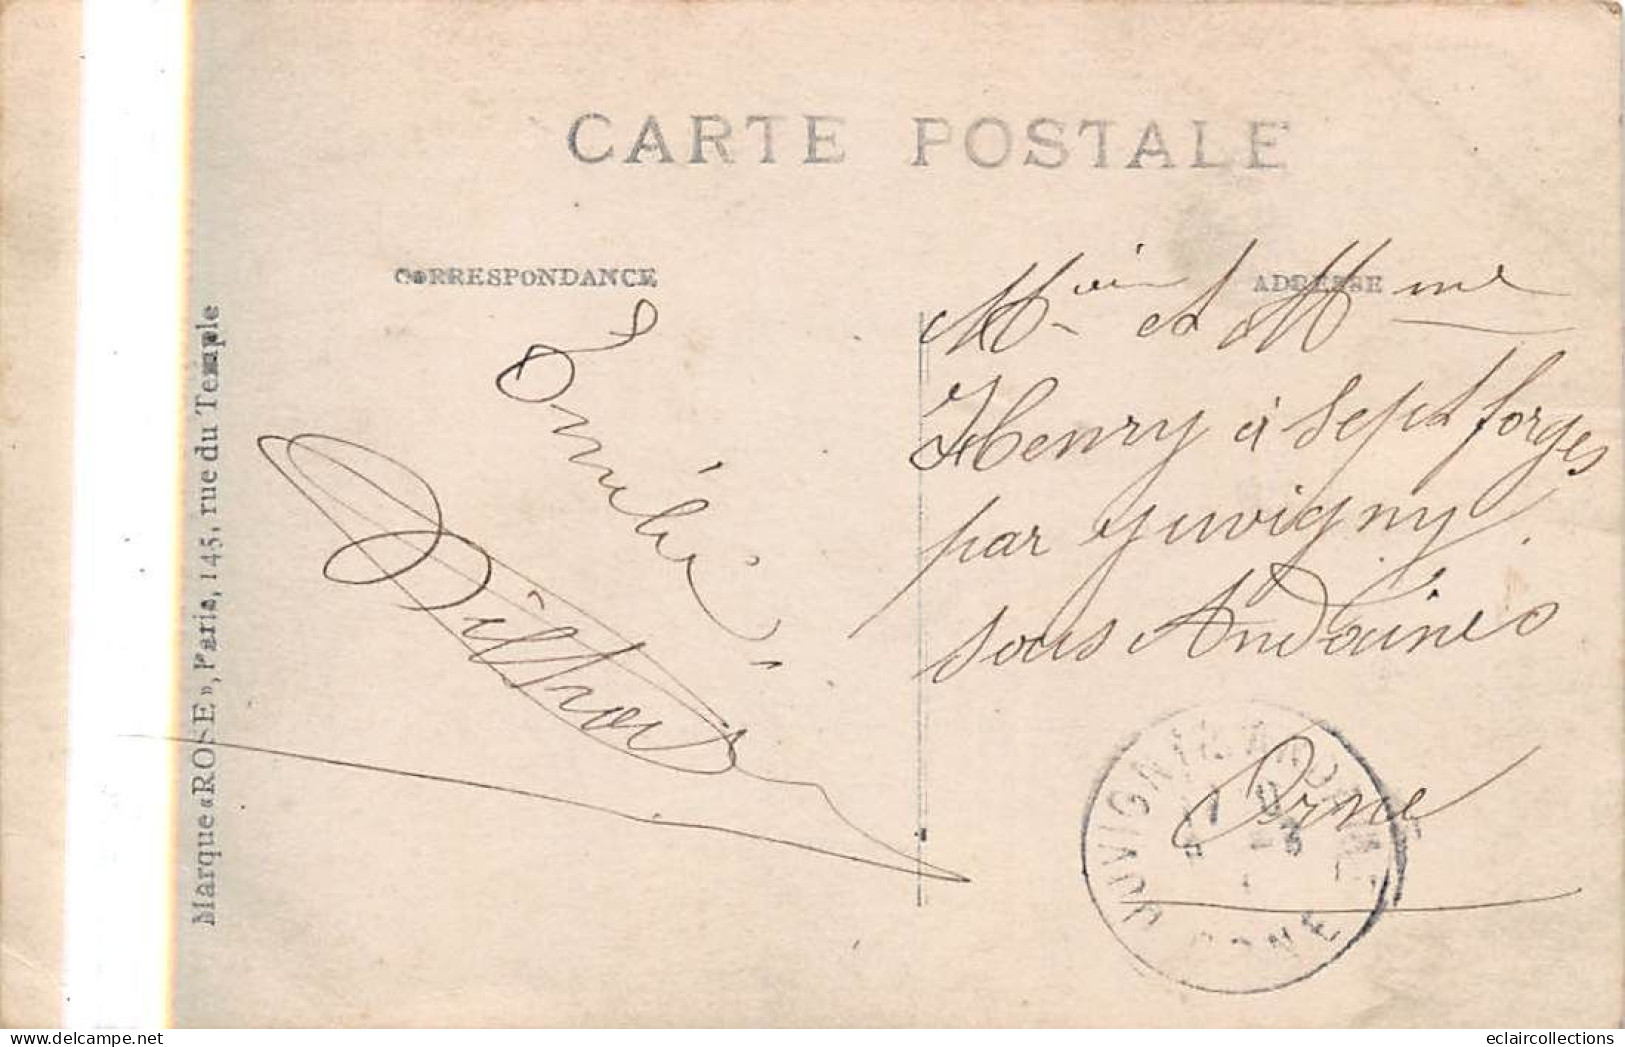 CARTE POSTALE
CORRESPONDANCE
ADRESSE
et Mme
Henry à Sept forges
par Juvigny
sous Andaine
Orne
JUVIGNY-S-ANDAINE
ORNE
Marque «ROSE», Paris, 145, rue du Temple
eclaircollections